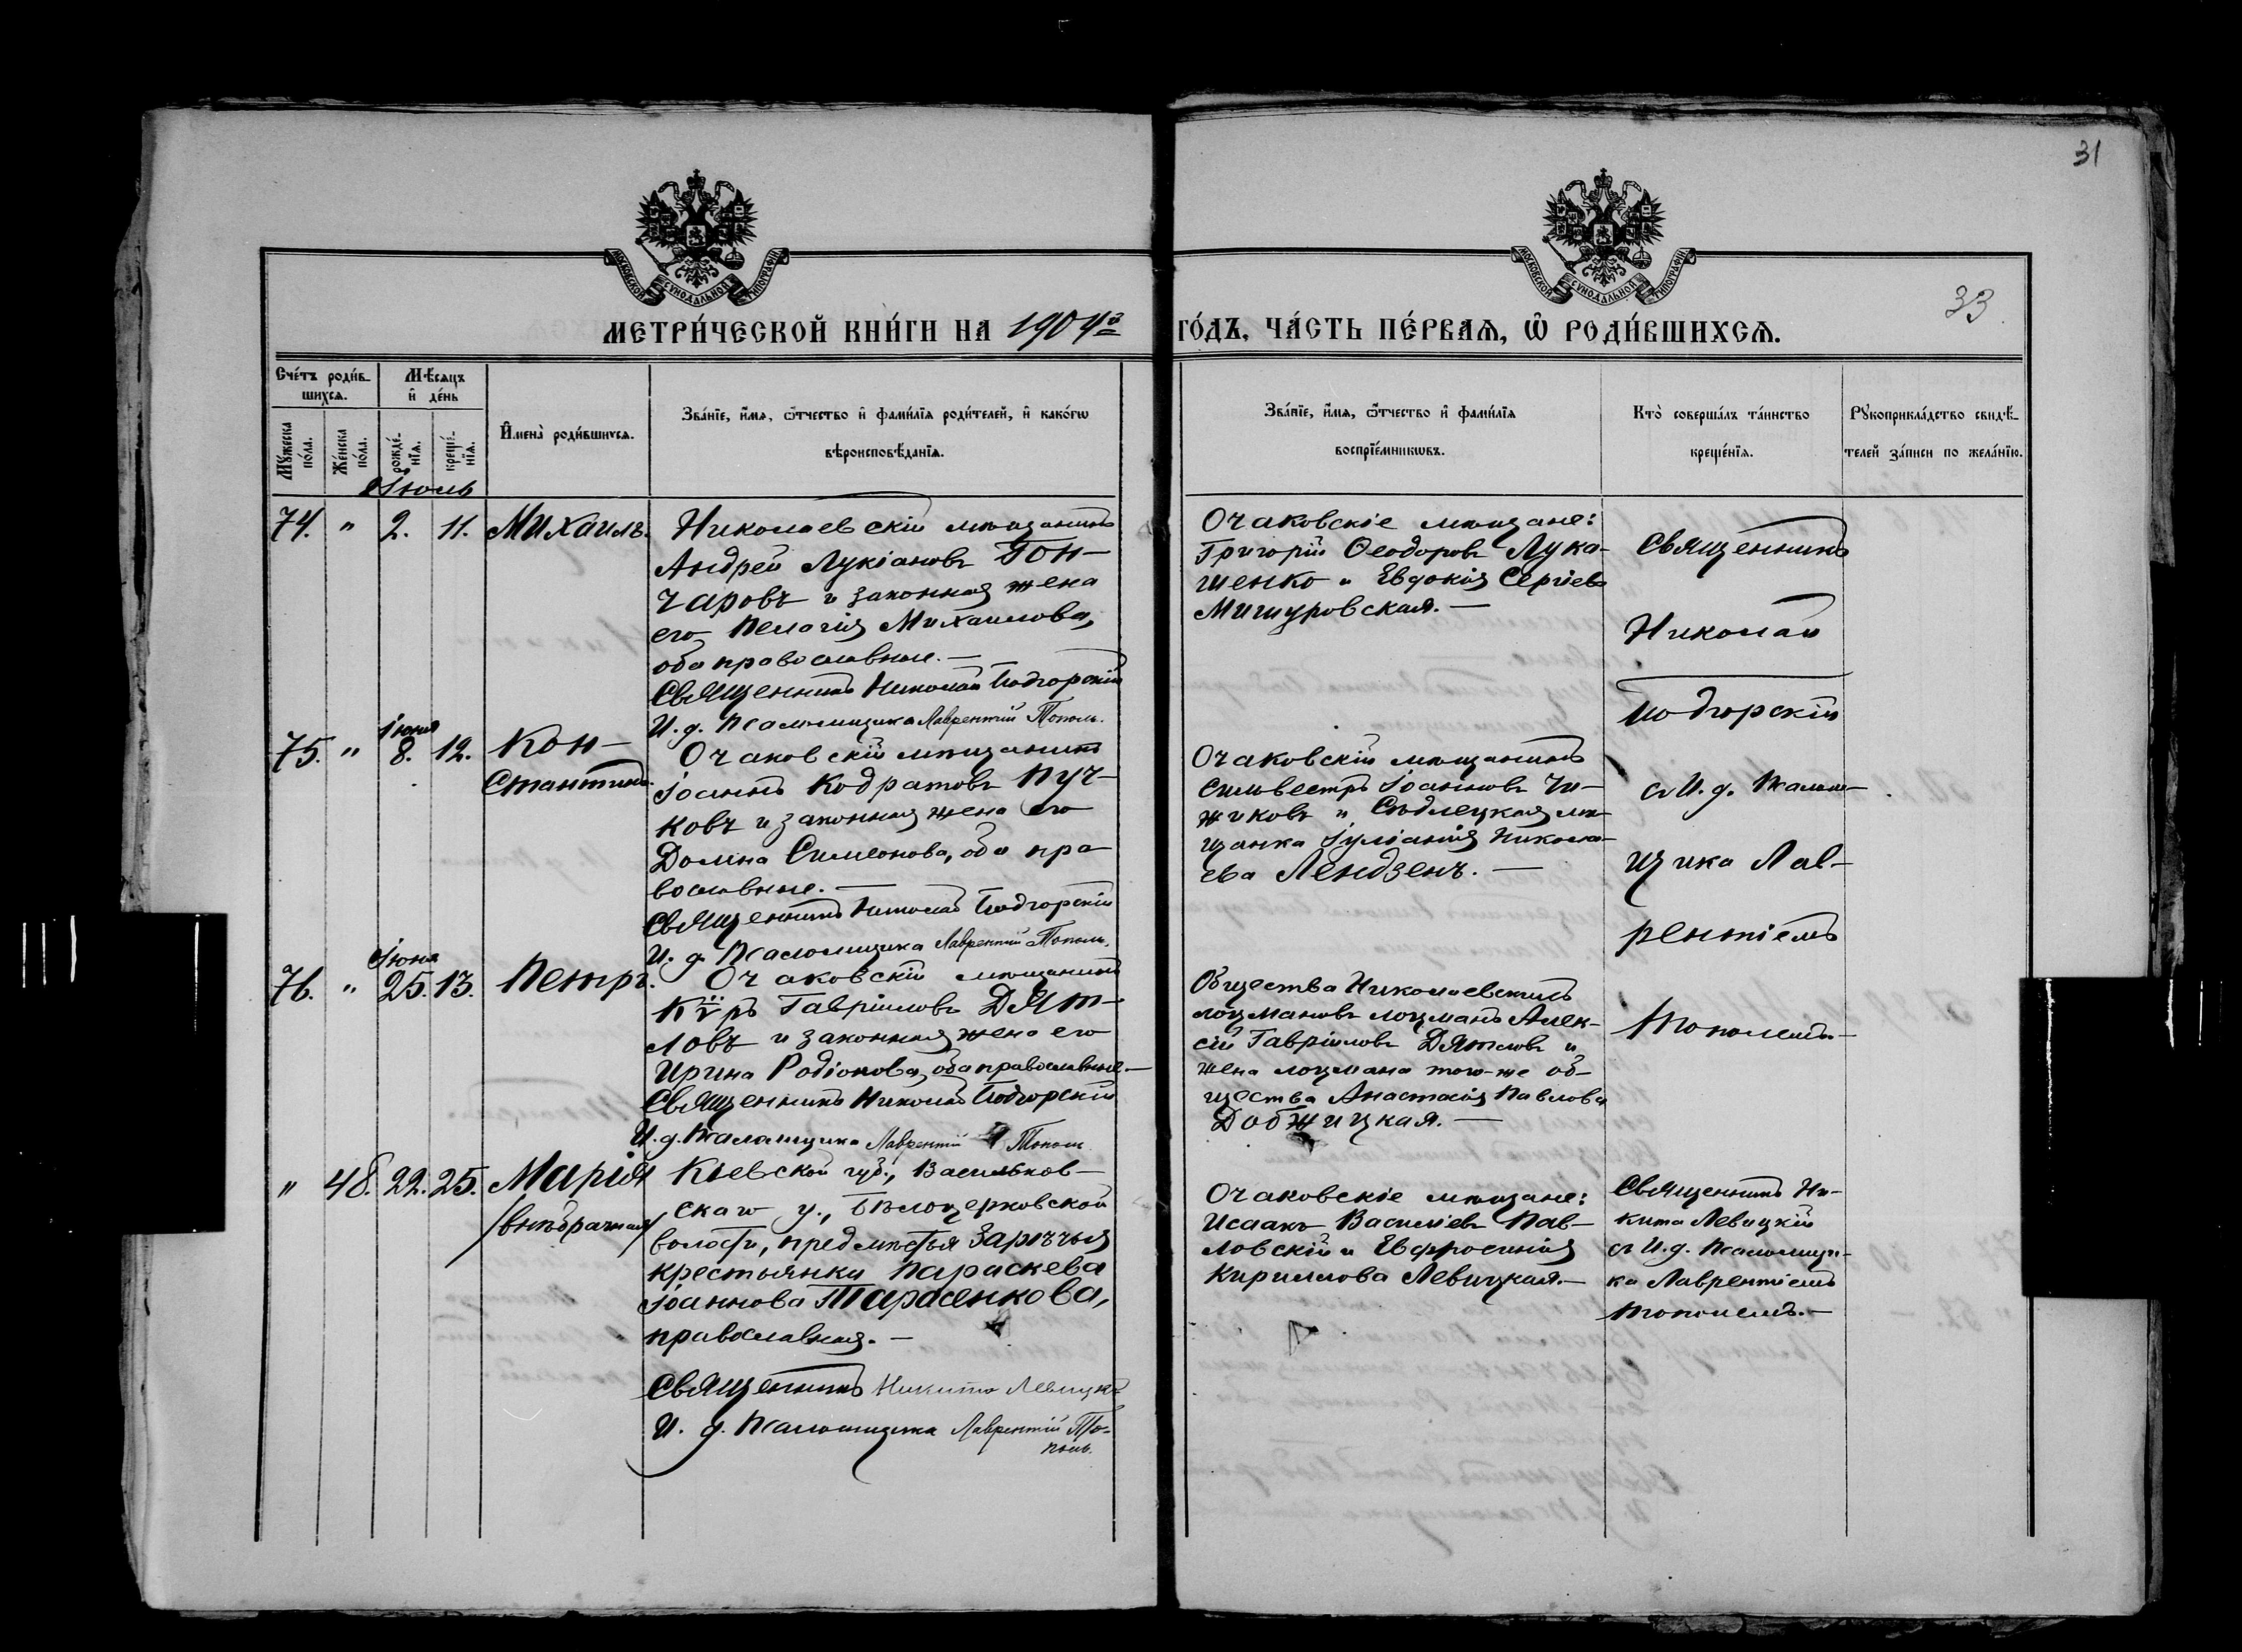 31
33
МОСКОВСКОЙ СѴНОДАЛЬНОЙ ТИПОГРАФІИ
МОСКОВСКОЙ СѴНОДАЛЬНОЙ ТИПОГРАФІИ
МЕТРИ́ЧЕСКОЙ КНИ́ГИ НА 1904й
ГО́ДЪ, ЧА́СТЬ ПЕ́РВАѦ, Ѡ҆ РОДИ́ВШИХСѦ.
Сче́тъ роди́в-
шихсѧ.
Мѣ́сѧцъ
и҆ де́нь
Мꙋ́жеска
по́ла.
Же́нска
по́ла.
рожде́-
нїѧ.
креще́-
нїѧ.
И҆мена̀ роди́вшихсѧ.
Зва́нїе, и҆́мѧ, ѻ҆́тчество и҆ фами́лїѧ роди́телей, и҆ како́гѡ
вѣроисповѣ́данїѧ.
Зва́нїе, и҆́мѧ, ѻ҆́тчество и҆ фами́лїѧ
воспрїе́мникѡвъ.
Кто̀ соверша́лъ та́инство
креще́нїѧ.
Рꙋкоприкла́дство свидѣ́-
телей за́писи по жела́нїю.
Іюль
74. " 2. 11. Михаилъ.
Николаевскій мѣщанинъ
Андрей Лукіановъ Гон-
чаровъ и законная жена
его Пелагія Михаилова,
оба православные. —
Священникъ Николай Подгорскій
И. д. Псаломщика Лаврентій Тополь.
Очаковскіе мѣщане:
Григорій Ѳеодоровъ Лука-
шенко и Евдокія Сергіева
Мишуровская. —
Священникъ
Николай
Подгорскій
съ И. д. Псалом-
щика Лав-
рентіемъ
Тополемъ. —
Іюня
75. " 8. 12. Кон-
стантинъ.
Очаковскій мѣщанинъ
Іоаннъ Кодратовъ Пуч-
ковъ и законная жена его
Домна Симеонова, оба пра-
вославные. —
Священникъ Николай Подгорскій
И. д. Псаломщика Лаврентій Тополь.
Очаковскій мѣщанинъ
Сильвестръ Іоанновъ Чи-
жиковъ и Сѣдлецкая мѣ-
щанка Іуліанія Никола-
ева Лендзенъ. —
Іюня
76. " 25. 13. Петръ.
Очаковскій мѣщанинъ
Кѵръ Гавріиловъ Дят-
ловъ и законная жена его
Ирина Родіонова, оба православные. —
Священникъ Николай Подгорскій
И. д. Псаломщика Лаврентій Тополь
Общества Николаевскихъ
лоцмановъ лоцманъ Алек-
сій Гавріиловъ Дятловъ и
жена лоцмана того-же об-
щества Анастасія Павлова
Добжицкая. —
" 48. 22. 25. Марія
/внѣбрачная/
Кіевской губ., Васильков-
скаго у., Бѣлоцерковской
волости, предмѣстья Зарѣчья
крестьянка Параскева
Іоаннова Тарасенкова,
православная. —
Священникъ Никита Левицкій
И. д. Псаломщика Лаврентій То-
поль.
Очаковскіе мѣщане:
Исаакъ Василіевъ Пав-
ловскій и Евфросинія
Кириллова Левицкая. —
Священникъ Ни-
кита Левицкій
съ И. д. Псаломщи-
ка Лаврентіемъ
Тополемъ. —